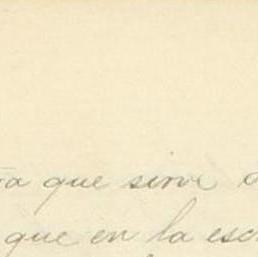 que sirve
que en la esc